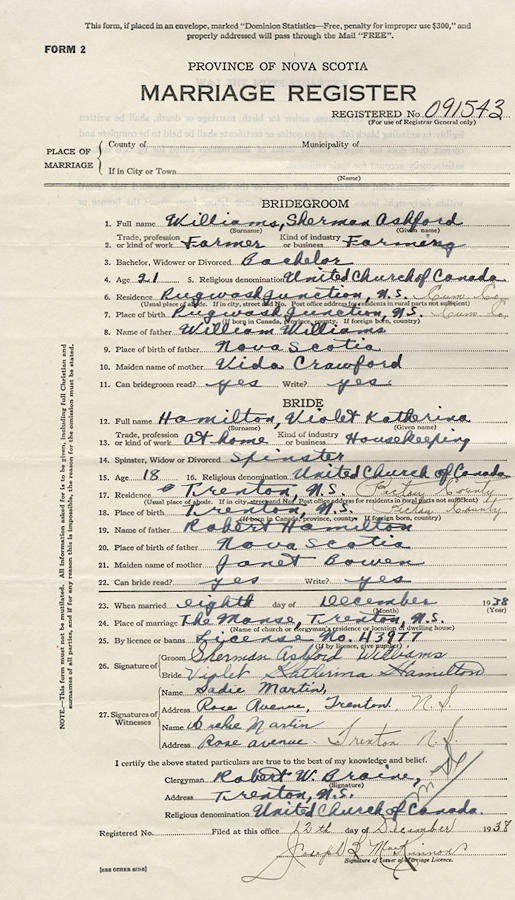 This form, if placed in an envelope, marked "Dominion Statistics—Free, penalty for improper use $300," and
properly addressed will pass through the Mail "FREE".
FORM 2
PROVINCE OF NOVA SCOTIA
MARRIAGE REGISTER
REGISTERED No. 091543
(For use of Registrar General only)
PLACE OF MARRIAGE
County of Municipality of
If in City or Town
(Name)
BRIDEGROOM
1. Full name Williams, Sherman Ashford
(Surname) (Given name)
2. Trade, profession or kind of work Farmer Kind of industry or business Farming
3. Bachelor, Widower or Divorced Bachelor
4. Age 21 5. Religious denomination United Church of Canada
6. Residence Pugwash Junction, N.S. Cum. Co.
(Usual place of abode. If in city, street and No. Post office address for residents in rural parts not sufficient)
7. Place of birth Pugwash Junction, N.S. Cum. Co.
(If born in Canada, province, county. If foreign born, country)
8. Name of father William Williams
9. Place of birth of father Nova Scotia
10. Maiden name of mother Vida Crawford
11. Can bridegroom read? yes Write? yes
BRIDE
12. Full name Hamilton, Violet Katherina
(Surname) (Given name)
13. Trade, profession or kind of work At home Kind of industry or business Housekeeping
14. Spinster, Widow or Divorced Spinster
15. Age 18 16. Religious denomination United Church of Canada
17. Residence Trenton, N.S. Pictou County
(Usual place of abode. If in city, street and No. Post office address for residents in rural parts not sufficient)
18. Place of birth Trenton, N.S. Pictou County
(If born in Canada, province, county. If foreign born, country)
19. Name of father Robert Hamilton
20. Place of birth of father Nova Scotia
21. Maiden name of mother Janet Bowen
22. Can bride read? yes Write? yes
23. When married eighth day of December 1938
(Month) (Year)
24. Place of marriage The Manse, Trenton, N.S.
(Name of church or clergyman's residence or location of dwelling house)
25. By licence or banns License No. 43977
(If by licence, give number)
26. Signature of
Groom Sherman Ashford Williams
Bride Violet Katherina Hamilton
27. Signatures of Witnesses
Name Sadie Martin,
Address Rose Avenue, Trenton. N.S.
Name Archie Martin
Address Rose avenue. Trenton N.S.
I certify the above stated particulars are true to the best of my knowledge and belief.
Clergyman Robert W. Braine,
(Signature)
Address Trenton, N.S.
Religious denomination United Church of Canada.
Registered No. Filed at this office 12th day of December 1938
Joseph
Signature of Issuer of Marriage Licence.
[SEE OTHER SIDE]
NOTE.—This form must not be mutilated. All information asked for is to be given, including full Christian and
surnames of all parties, and if for any reason this is impossible, the reason for the omission must be stated.